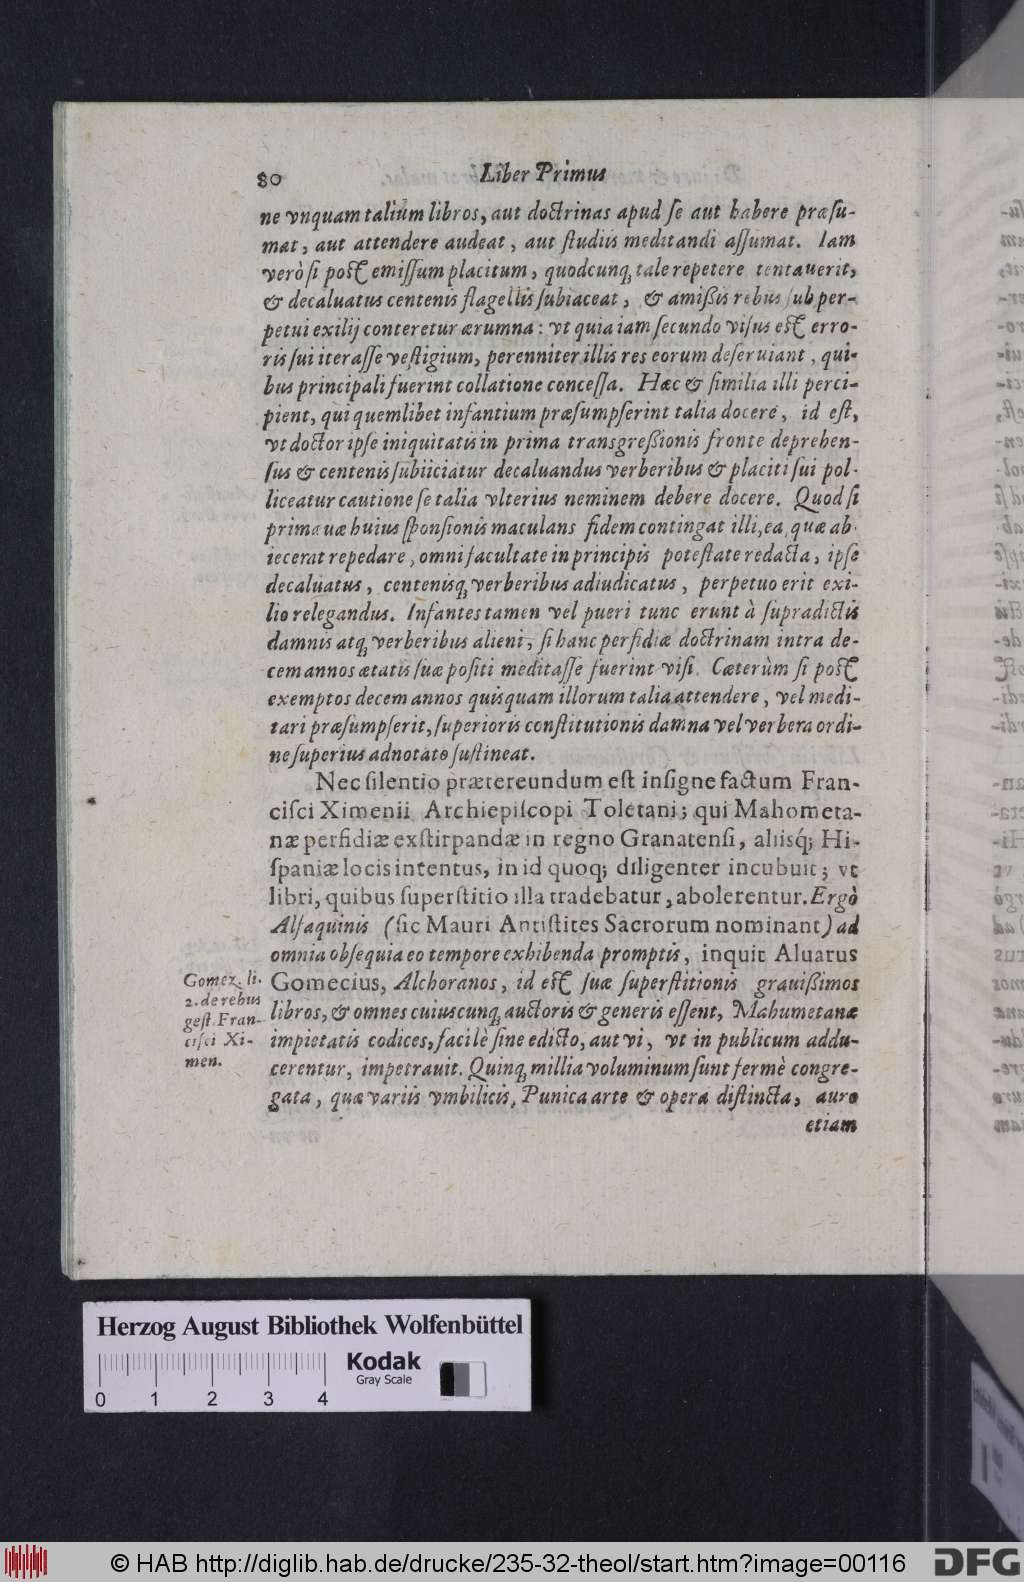 80 Liber Primus
ne vnquam talium libros, aut doctrinas apud ſe aut habere præſu-
mat, aut attendere audeat, aut ſtudiis meditandi aſſumat. Iam
verò ſi poſt emiſſum placitum, quodcunq́; tale repetere tentauerit,
& decaluatus centenis flagellis ſubiaceat, & amißis rebus ſub per-
petui exilij conteretur ærumna: vt quia iam ſecundo viſus eſt erro-
ris ſui iteraſſe veſtigium, perenniter illis res eorum deſeruiant, qui-
bus principali fuerint collatione conceſſa. Hæc & ſimilia illi perci-
pient, qui quemlibet infantium præſumpſerint talia docere, id eſt,
vt doctor ipſe iniquitatis in prima transgreßionis fronte deprehen-
ſus & centenis ſubiiciatur decaluandus verberibus & placiti ſui pol-
liceatur cautione ſe talia vlterius neminem debere docere. Quod ſi
primæuæ huius ſponſionis maculans fidem contingat illi, ea, quæ ab-
iecerat repedare, omni facultate in principis poteſtate redacta, ipſe
decaluatus, centenisq́; verberibus adiudicatus, perpetuo erit exi-
lio relegandus. Infantes tamen vel pueri tunc erunt à ſupradictis
damnis atq́; verberibus alieni, ſi hanc perfidiæ doctrinam intra de-
cem annos ætatis ſuæ poſiti meditaſſe fuerint viſi. Cæterùm ſi poſt
exemptos decem annos quisquam illorum talia attendere, vel medi-
tari præſumpſerit, ſuperioris conſtitutionis damna vel verbera ordi-
ne ſuperius adnotato ſuſtineat.
Nec ſilentio prætereundum eſt inſigne factum Fran-
ciſci Ximenii Archiepiſcopi Toletani; qui Mahometa-
næ perfidiæ exſtirpandæ in regno Granatenſi, aliisq́; Hi-
ſpaniæ locis intentus, in id quoq; diligenter incubuit; vt
libri, quibus ſuperſtitio illa tradebatur, abolerentur. Ergò
Alfaquinis (ſic Mauri Antiſtites Sacrorum nominant) ad
omnia obſequia eo tempore exhibenda promptis, inquit Aluarus
Gomecius, Alchoranos, id eſt ſuæ ſuperſtitionis grauißimos
libros, & omnes cuiuscunq́; auctoris & generis eſſent, Mahumetanæ
impietatis codices, facilè ſine edicto, aut vi, vt in publicum addu-
cerentur, impetrauit. Quinq́; millia voluminum ſunt fermè congre-
gata, quæ variis vmbilicis, Punica arte & opera diſtincta, auro
etiam
Gomez. li.
2. de rebus
geſt. Fran-
ciſci Xi-
men.
Herzog August Bibliothek Wolfenbüttel
Kodak
Gray Scale
0 1 2 3 4
© HAB http://diglib.hab.de/drucke/235-32-theol/start.htm?image=00116
DFG